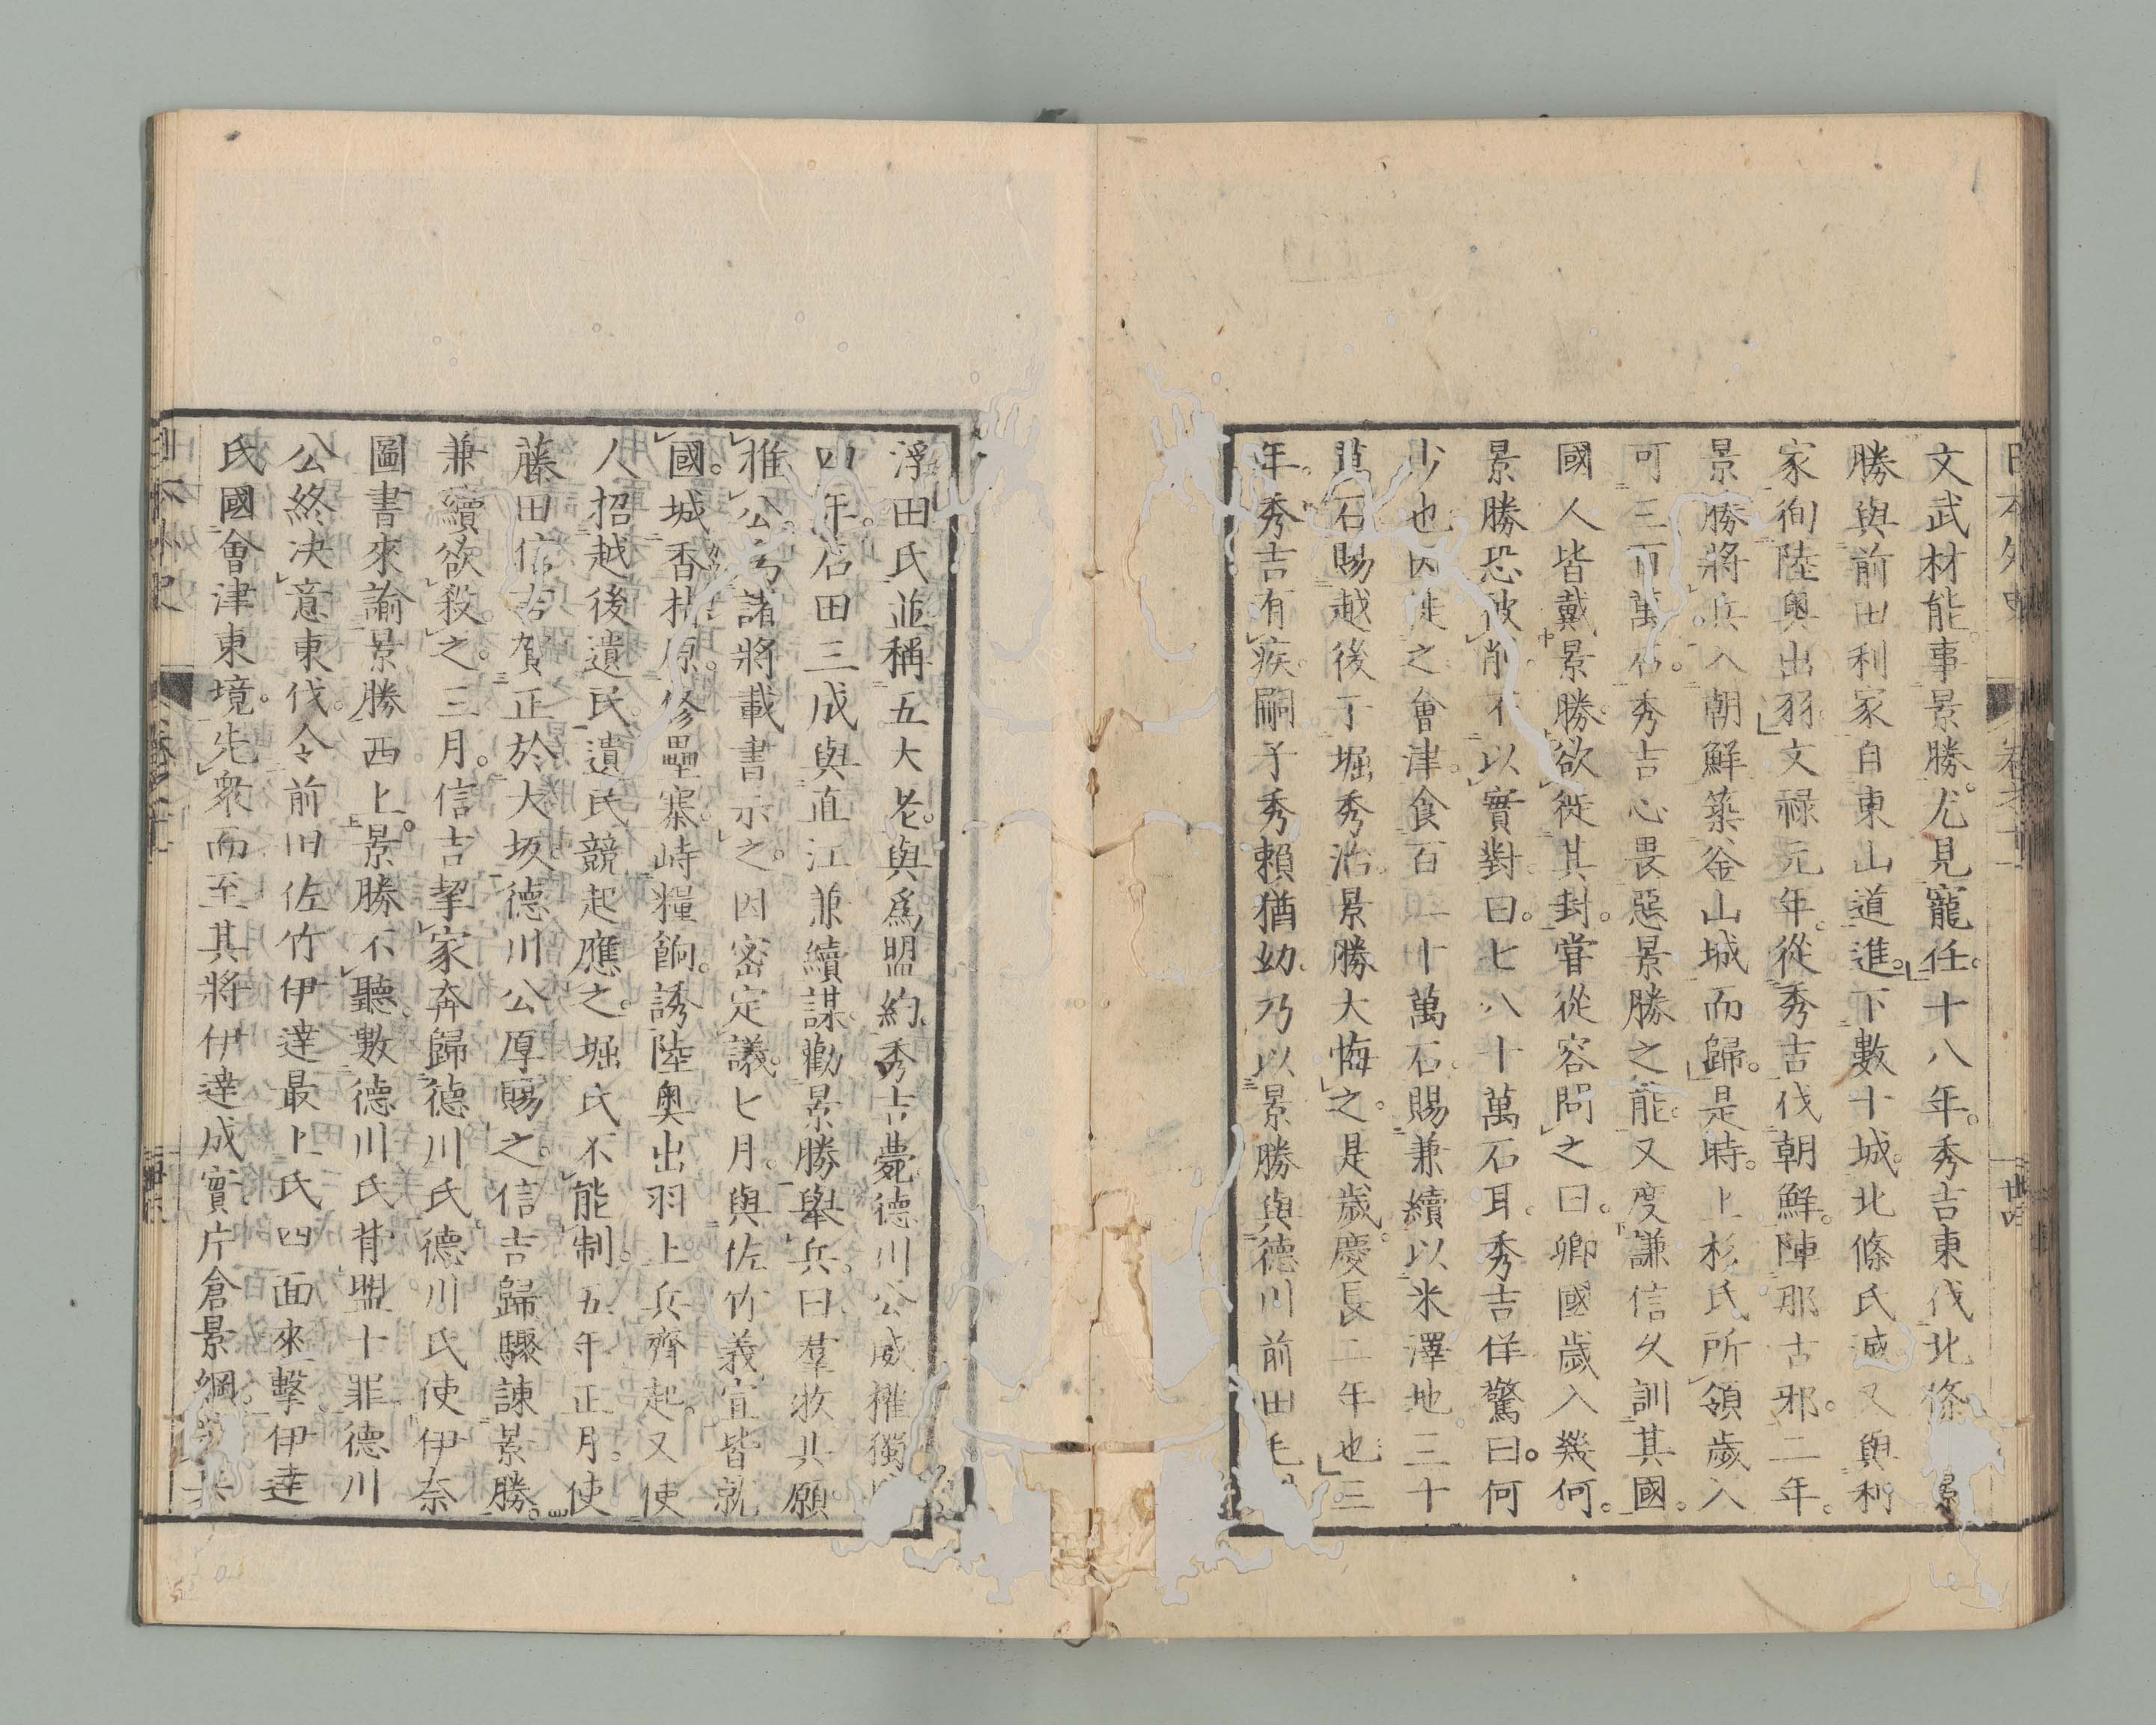 日本外史 卷之十一 廿四
文武材能。事景勝。尤見寵任。十八年。秀吉東伐北條 景
勝與前田利家自東山道進。下數十城。北條氏滅又與利
家徇陸奧出羽。文祿元年。從秀吉伐朝鮮。陣那古邪。二年。
景勝將兵入朝鮮築釜山城而歸。是時。上杉氏所領歲入
可三百萬石。秀吉心畏惡景勝之能。又度謙信久訓其國。
國人皆戴景勝。欲徙其封。嘗從容問之曰。卿國歲入幾何。
景勝恐被削。不以實對。曰。七八十萬石耳。秀吉佯驚曰。何
少也因徙之會津。食百二十萬石。賜兼續以米澤地。三十
萬石賜越後于堀秀治。景勝大悔之。是歲。慶長二年也三
年。秀吉有疾。嗣子秀賴猶幼。乃以景勝與德川前田毛
浮田氏並稱五大老。與爲盟約。秀吉薨德川公威權獨
四年。石田三成與直江兼續謀。勸景勝舉兵。曰羣牧共願
推公。乃諸將載書示之。因密定議。七月。與佐竹義宣皆就
國。城香指原。修壘寨。峙糧餉。誘陸奧出羽上兵齊起。又使
人招越後遺民。遺民競起應之。堀氏不能制。五年正月。使
藤田信吉賀正於大坂。德川公厚賜之。信吉歸驟諫景勝。
兼續欲殺之。三月。信吉挈家奔歸德川氏德川氏使伊奈
圖書來諭景勝西上。景勝不聽。數德川氏背盟十罪德川
公終決意東伐。令前田佐竹伊達最上氏四面來擊。伊達
氏國會津東境。先衆而至其將伊達成實片倉景綱